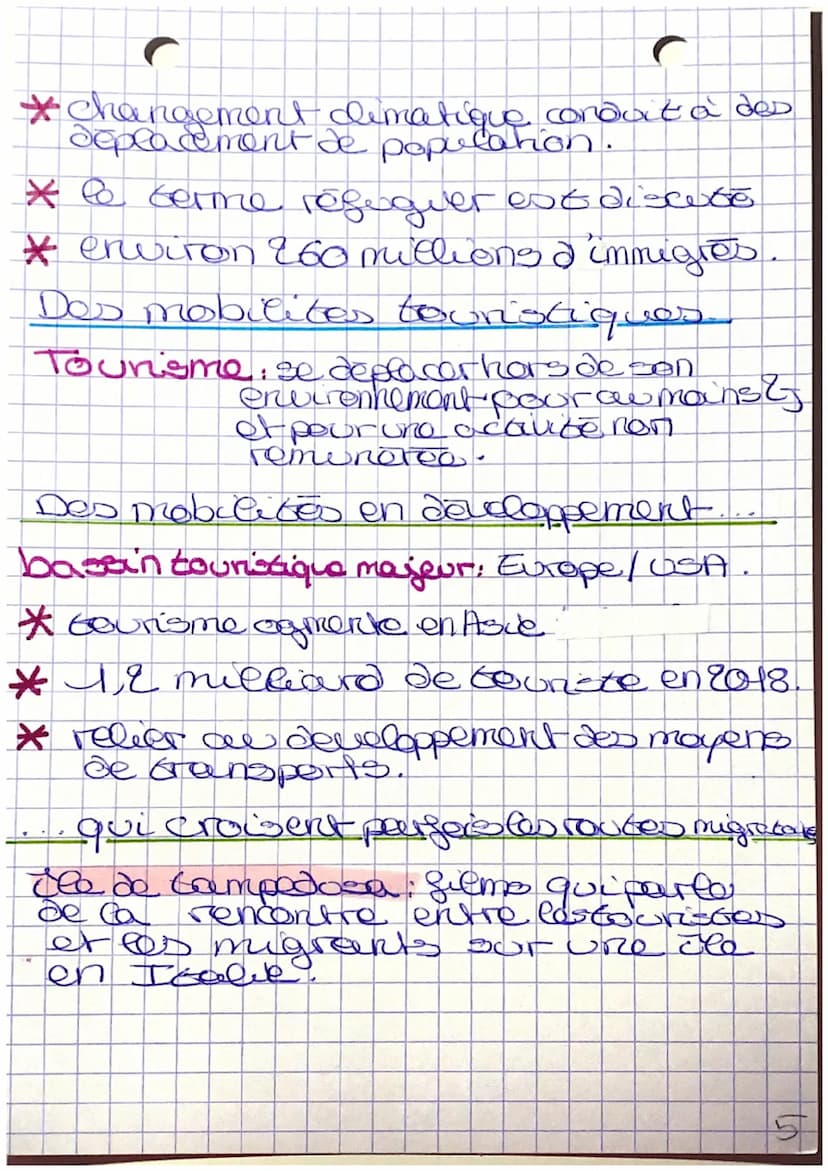 * changement climatique conduit à des
déplacement de population.
* le terme réfuguer est discuté
* environ 260 millions d'immigrés.
Des mobilites touristiques.
Tourisme : se deplacer hors de son
environnement pour au moins 2j
et pour une activité non
remunérée.
Des mobilités en développement...
bassin touristique majeur : Europe / USA.
* tourisme agmente en Asie
* 1,2 milliard de touriste en 2018.
* relier au developpement des moyens
de transports.
... qui croisent parfois les routes migratoires
île de Lampedosa : films qui parle
de la rencontre entre les touristes
et les migrants sur une île
en Italie.
5